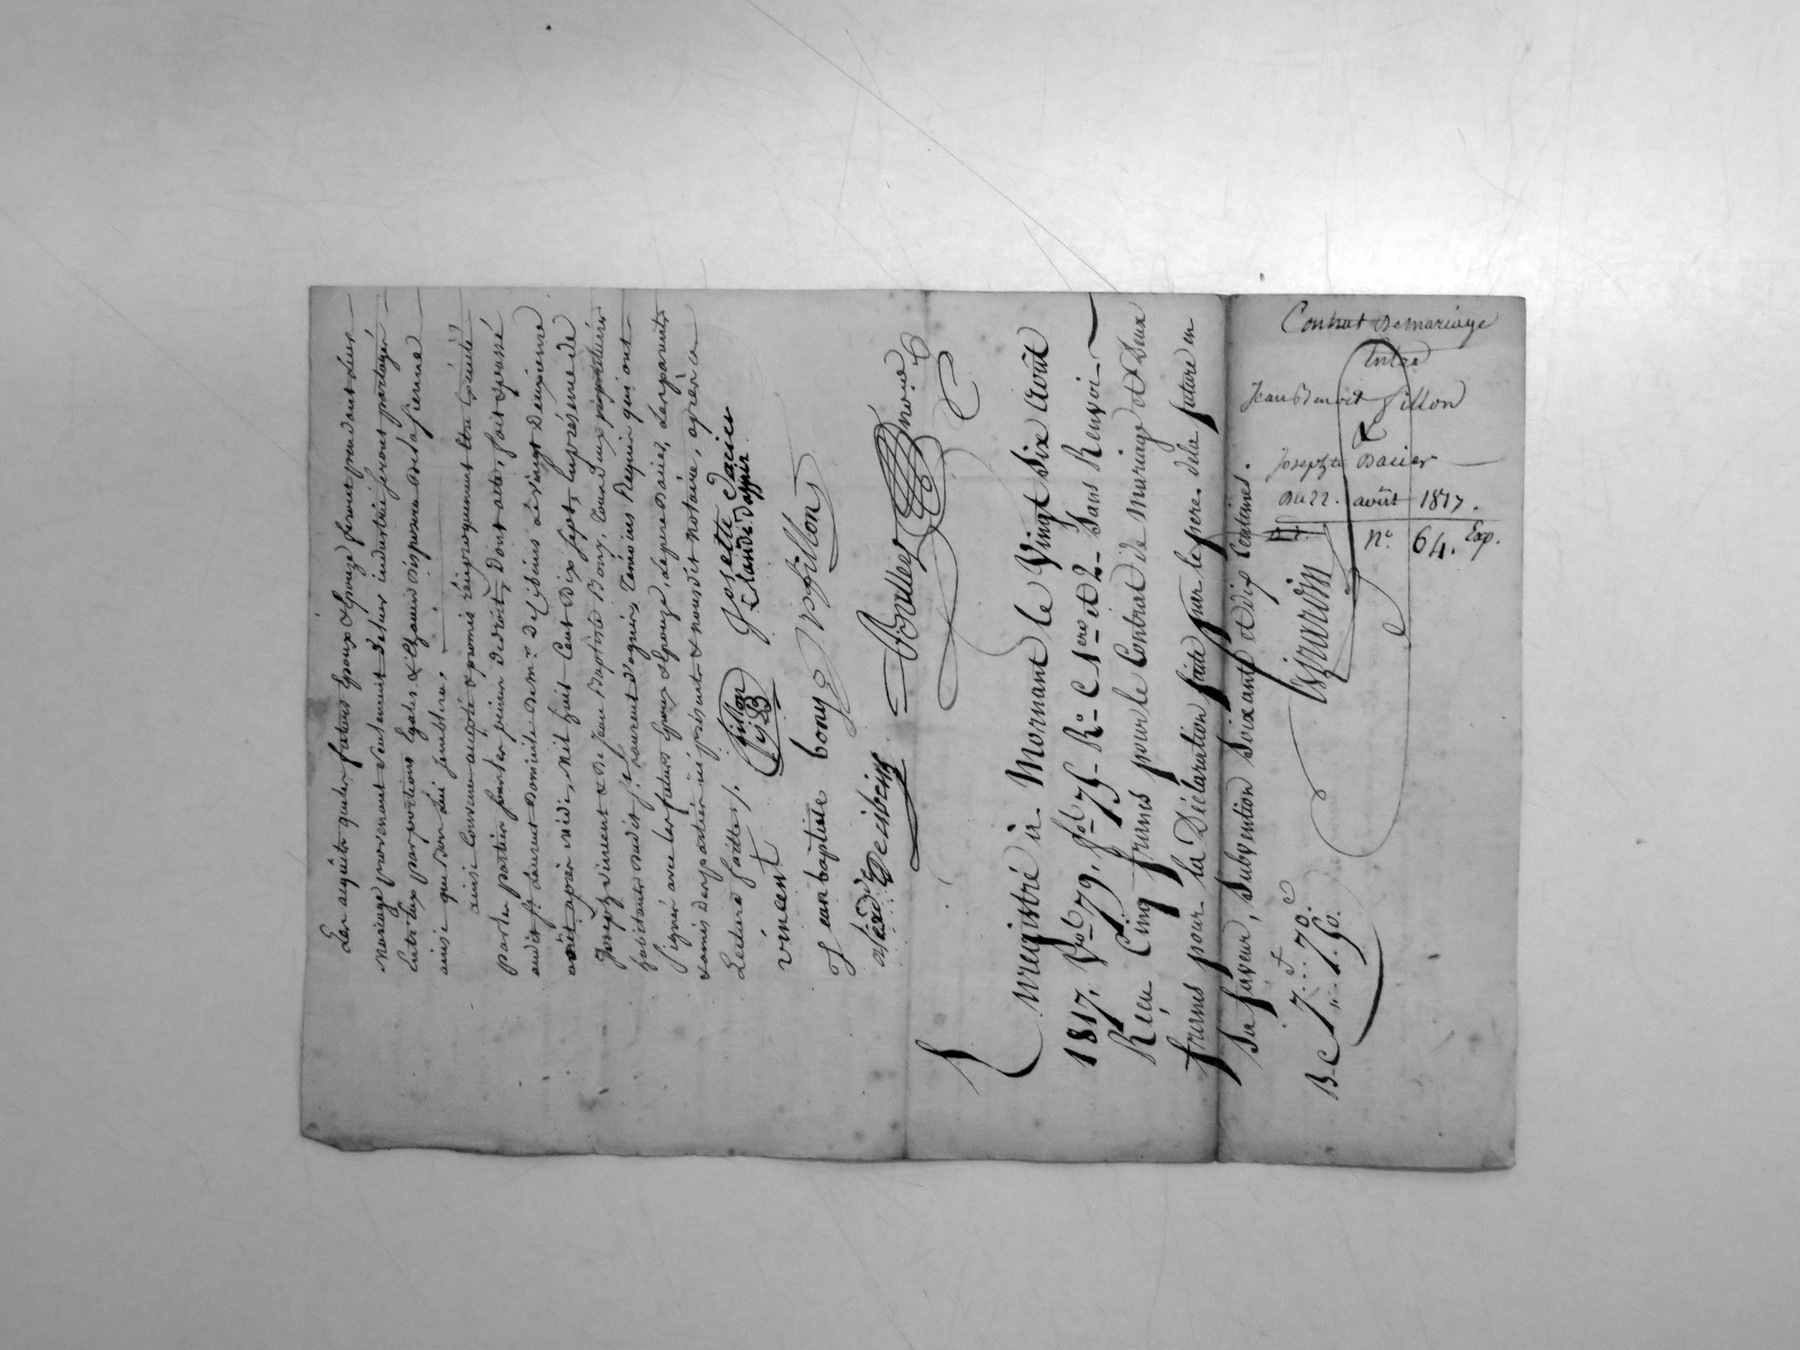 Les acquets que les futurs Epoux & Epouze feront pendant leur
Mariage provenant seulement de leur industrie seront partagés
Entr'Eux par portions Egales & Chacun disposera de la sienne
ainsi que bon lui semblera.
ainsi Convenu accepté & promis réciproquement Etre Exécuté
par les parties sous les peines de droit, Dont acte, fait & passé
audit St Laurent Domicile de Mr Desisbeins le Vingt Deuxieme
août après Midi, Mil huit Cent Dix Sept, En présence de
Joseph Vincent & de Jean Baptiste Bony, tous deux propriétaires
habitants dudit St Laurent d'agnis, Témoins Requis qui ont
signé avec les futurs Epoux & Epouze, le pere Daries, les parents
& amis des parties ici présents & nous dit Notaire, après
Lecture faitte.
fillon
J B
Josette daries
Claude dassis
vincent
Jean baptiste bony
J B fillon
Desisbeins
Boullier Notre
Enregistré à Mornant le Vingt Six Août
1817, Vol 79, fol 75 Ro C 1ere et 2 Sans Renvoi
Reçu Cinq francs pour le Contrat de Mariage et Deux
francs pour la Déclaration faite par le pere de la future en
Sa faveur, Subvention Soixante et dix Centimes.
B C 7..70.
Contrat de mariage
Entre
Jean Benoit fillon
&
Josephte Daries
du 22. août 1817.
No 64. Exp.